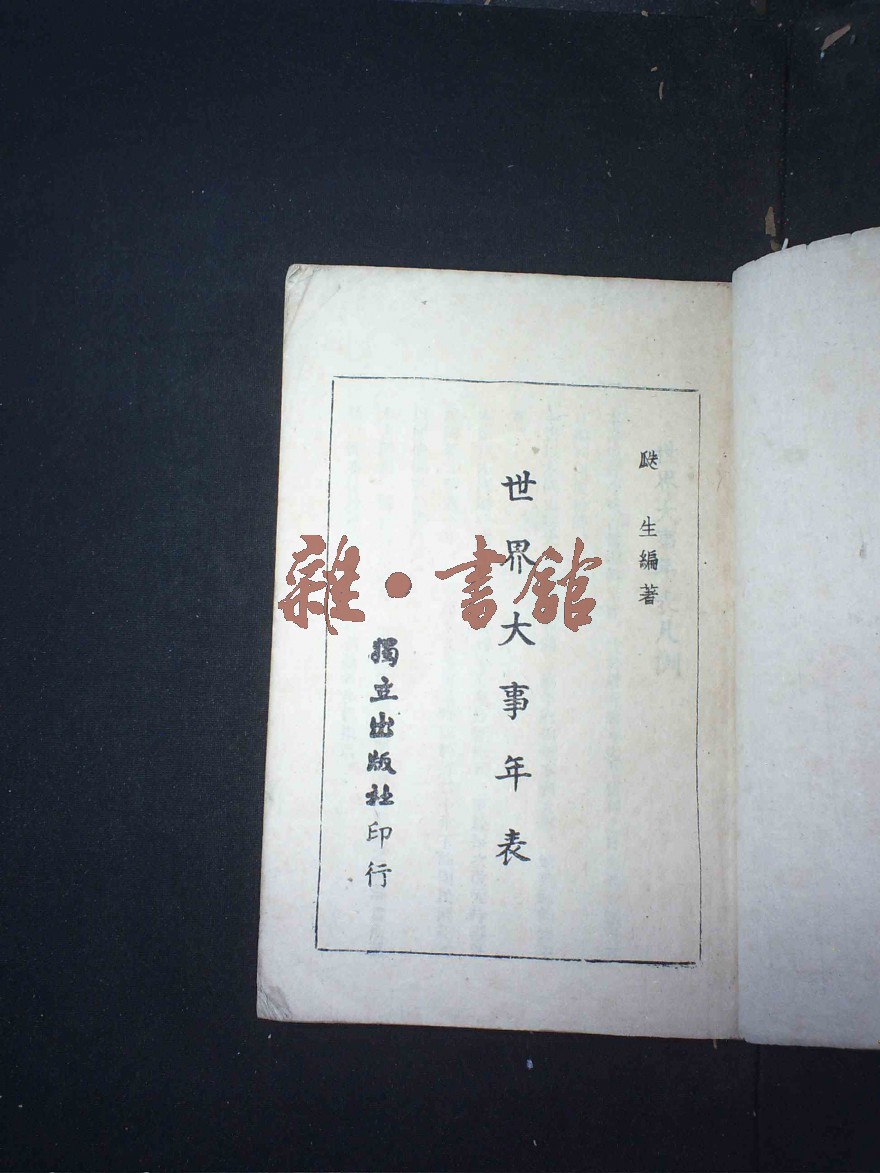 生編著
世界大事年表
獨立出版社印行
雜·書館